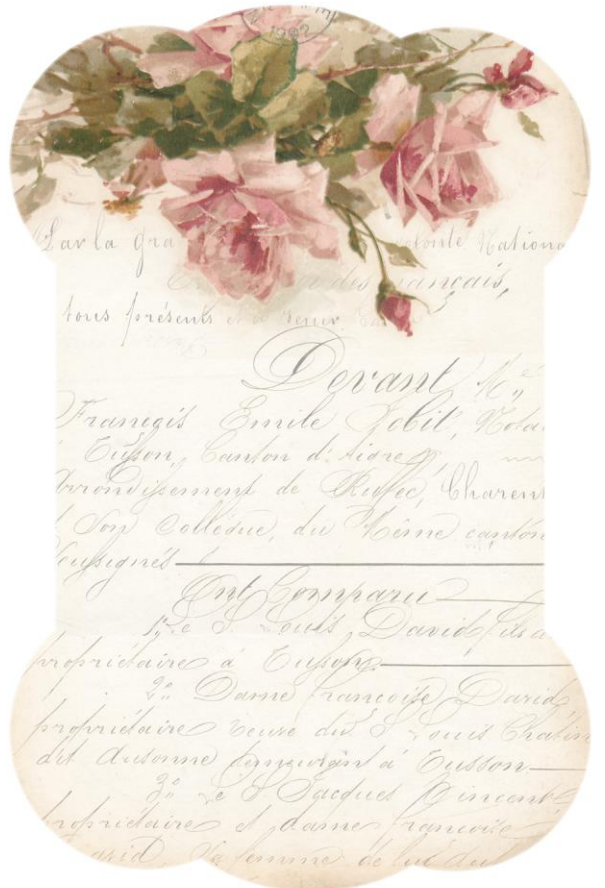 1902
Par la gra volonté Nationa
des ançais,
tous présents et à venir
Devant Me
François Emile Jobit, Nota
Tusson, Canton d'Aigre,
arrondissement de Ruffec, Charent
Son Collègue, du Même canton
Soussignés
Ont Comparu
1º Le S. Louis David fils
propriétaire à Tusson
2º Dame Françoise David
propriétaire veuve du S. Louis
dit Ausonne demeurant à Tusson
3º Le S. Jacques
propriétaire et dame Françoise
David, sa femme de lui